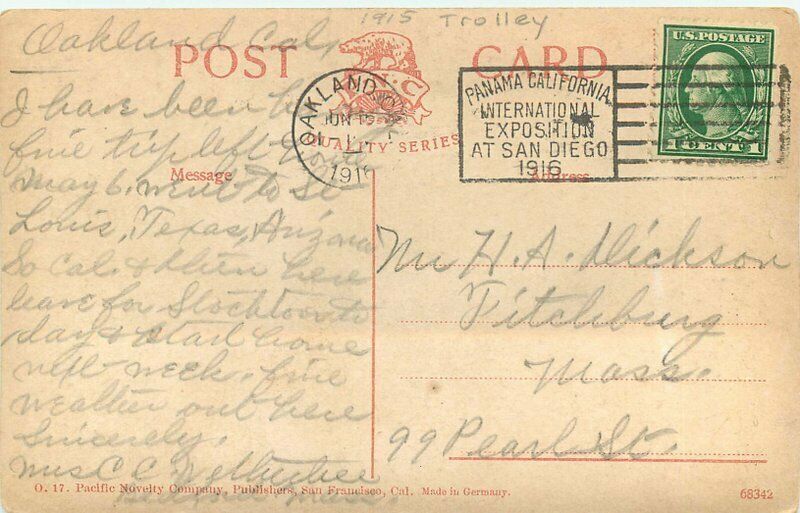 1915 Trolley
Oakland Cal,
POST CARD
P N C
QUALITY SERIES
OAKLAND
JUN 13
1916
PANAMA CALIFORNIA
INTERNATIONAL
EXPOSITION
AT SAN DIEGO
1916
U.S. POSTAGE
1 CENT 1
Message
Address
I have been
fine trip left
May 6. went to St
Louis, Texas, Arizona
So Cal. & then here
leave for Stockton to
day & start home
next week. fine
weather out here
Sincerely.
Mrs C. C. Wetherbee
Mr H. A. Dickson
Fitchburg
Mass.
99 Pearl St.
O. 17. Pacific Novelty Company, Publishers, San Francisco, Cal. Made in Germany.
68342